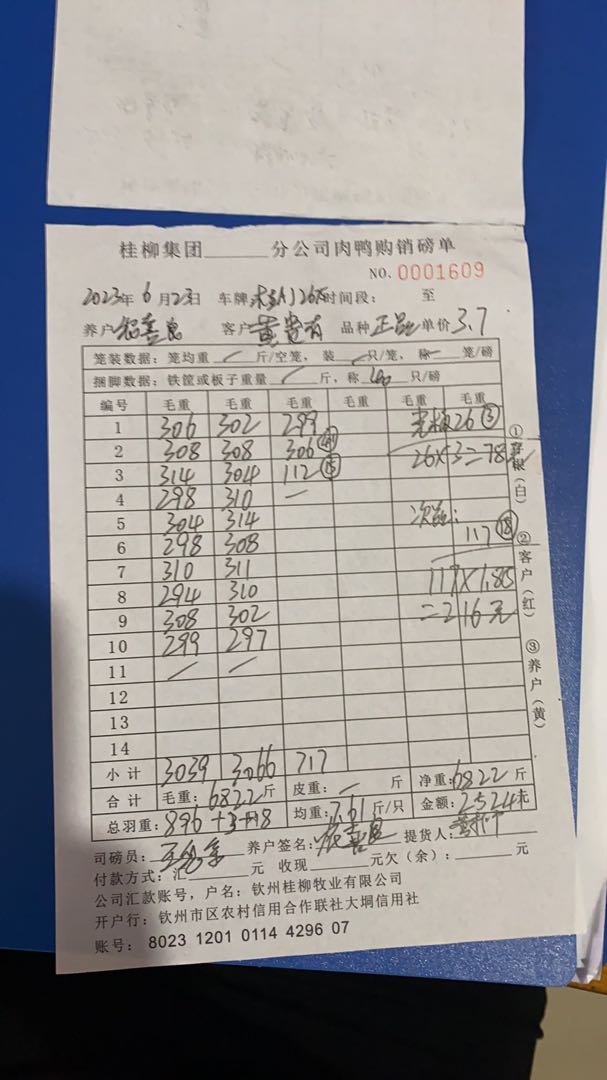 桂柳集团______分公司肉鸭购销磅单
NO. 0001609
2023年 6月23日 车牌 时间段： 至
养户 客户 黄贵有 品种 正品 单价 3.7
笼装数据：笼均重 / 斤/空笼，装 / 只/笼，称 / 笼/磅
捆脚数据：铁筐或板子重量 / 斤，称 40 只/磅
编号 毛重 毛重 毛重 毛重 毛重 毛重
1 306 302 299 26 ③
2 308 308 306 26×3=78
3 314 304 112
4 298 310 —
5 304 314 次品：
6 298 308 117 ⑱
7 310 311
8 294 310 117×1.85
9 308 302 =216元
10 299 297
11 / /
12
13
14
小计 3039 3066 717
合计 毛重：6822斤 皮重：— 斤 净重：6822斤
总羽重：896+3+18 均重：7.61斤/只 金额：
司磅员： 养户签名： 提货人：
付款方式：汇______元 收现______元欠（余）：______元
公司汇款账号，户名：钦州桂柳牧业有限公司
开户行：钦州市区农村信用合作联社大垌信用社
账号：8023 1201 0114 4296 07
①存根（白）
②客户（红）
③养户（黄）